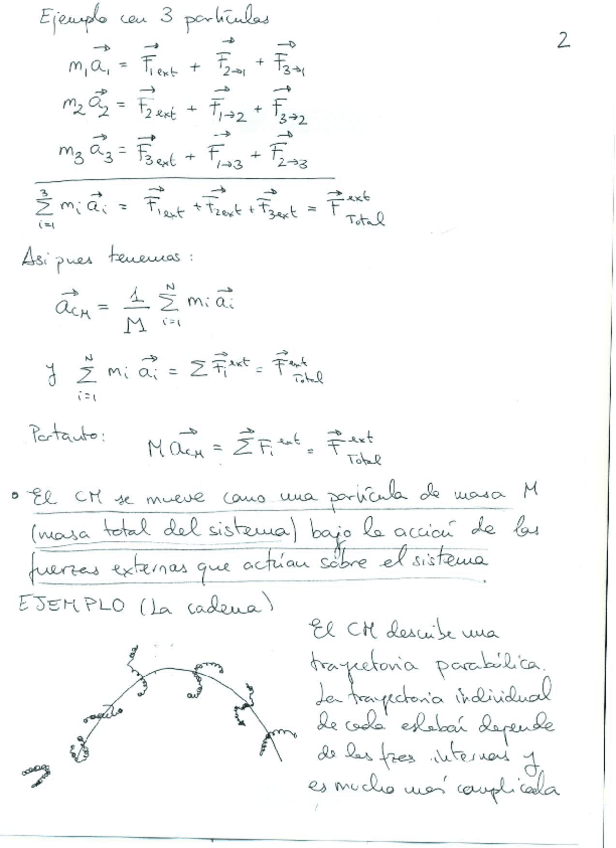 Ejemplo con 3 partículas
2
m₁a⃗₁ = F⃗₁ext + F⃗₂→₁ + F⃗₃→₁
m₂a⃗₂ = F⃗₂ext + F⃗₁→₂ + F⃗₃→₂
m₃a⃗₃ = F⃗₃ext + F⃗₁→₃ + F⃗₂→₃
∑_{i=1}^{3} mᵢa⃗ᵢ = F⃗₁ext + F⃗₂ext + F⃗₃ext = F⃗_{Total}^{ext}
Asi pues tenemos:
a⃗_{CM} = 1/M ∑_{i=1}^{N} mᵢa⃗ᵢ
y ∑_{i=1}^{N} mᵢa⃗ᵢ = ∑F⃗ᵢ^{ext} = F⃗_{Total}^{ext}
Portanto: Ma⃗_{CM} = ∑F⃗ᵢ^{ext} = F⃗_{Total}^{ext}
• El CM se mueve como una partícula de masa M
(masa total del sistema) bajo la acción de las
fuerzas externas que actúan sobre el sistema
EJEMPLO (La cadena)
El CM describe una
trayectoria parabólica.
La trayectoria individual
de cada eslabón depende
de las fzas internas y
es mucho más complicada